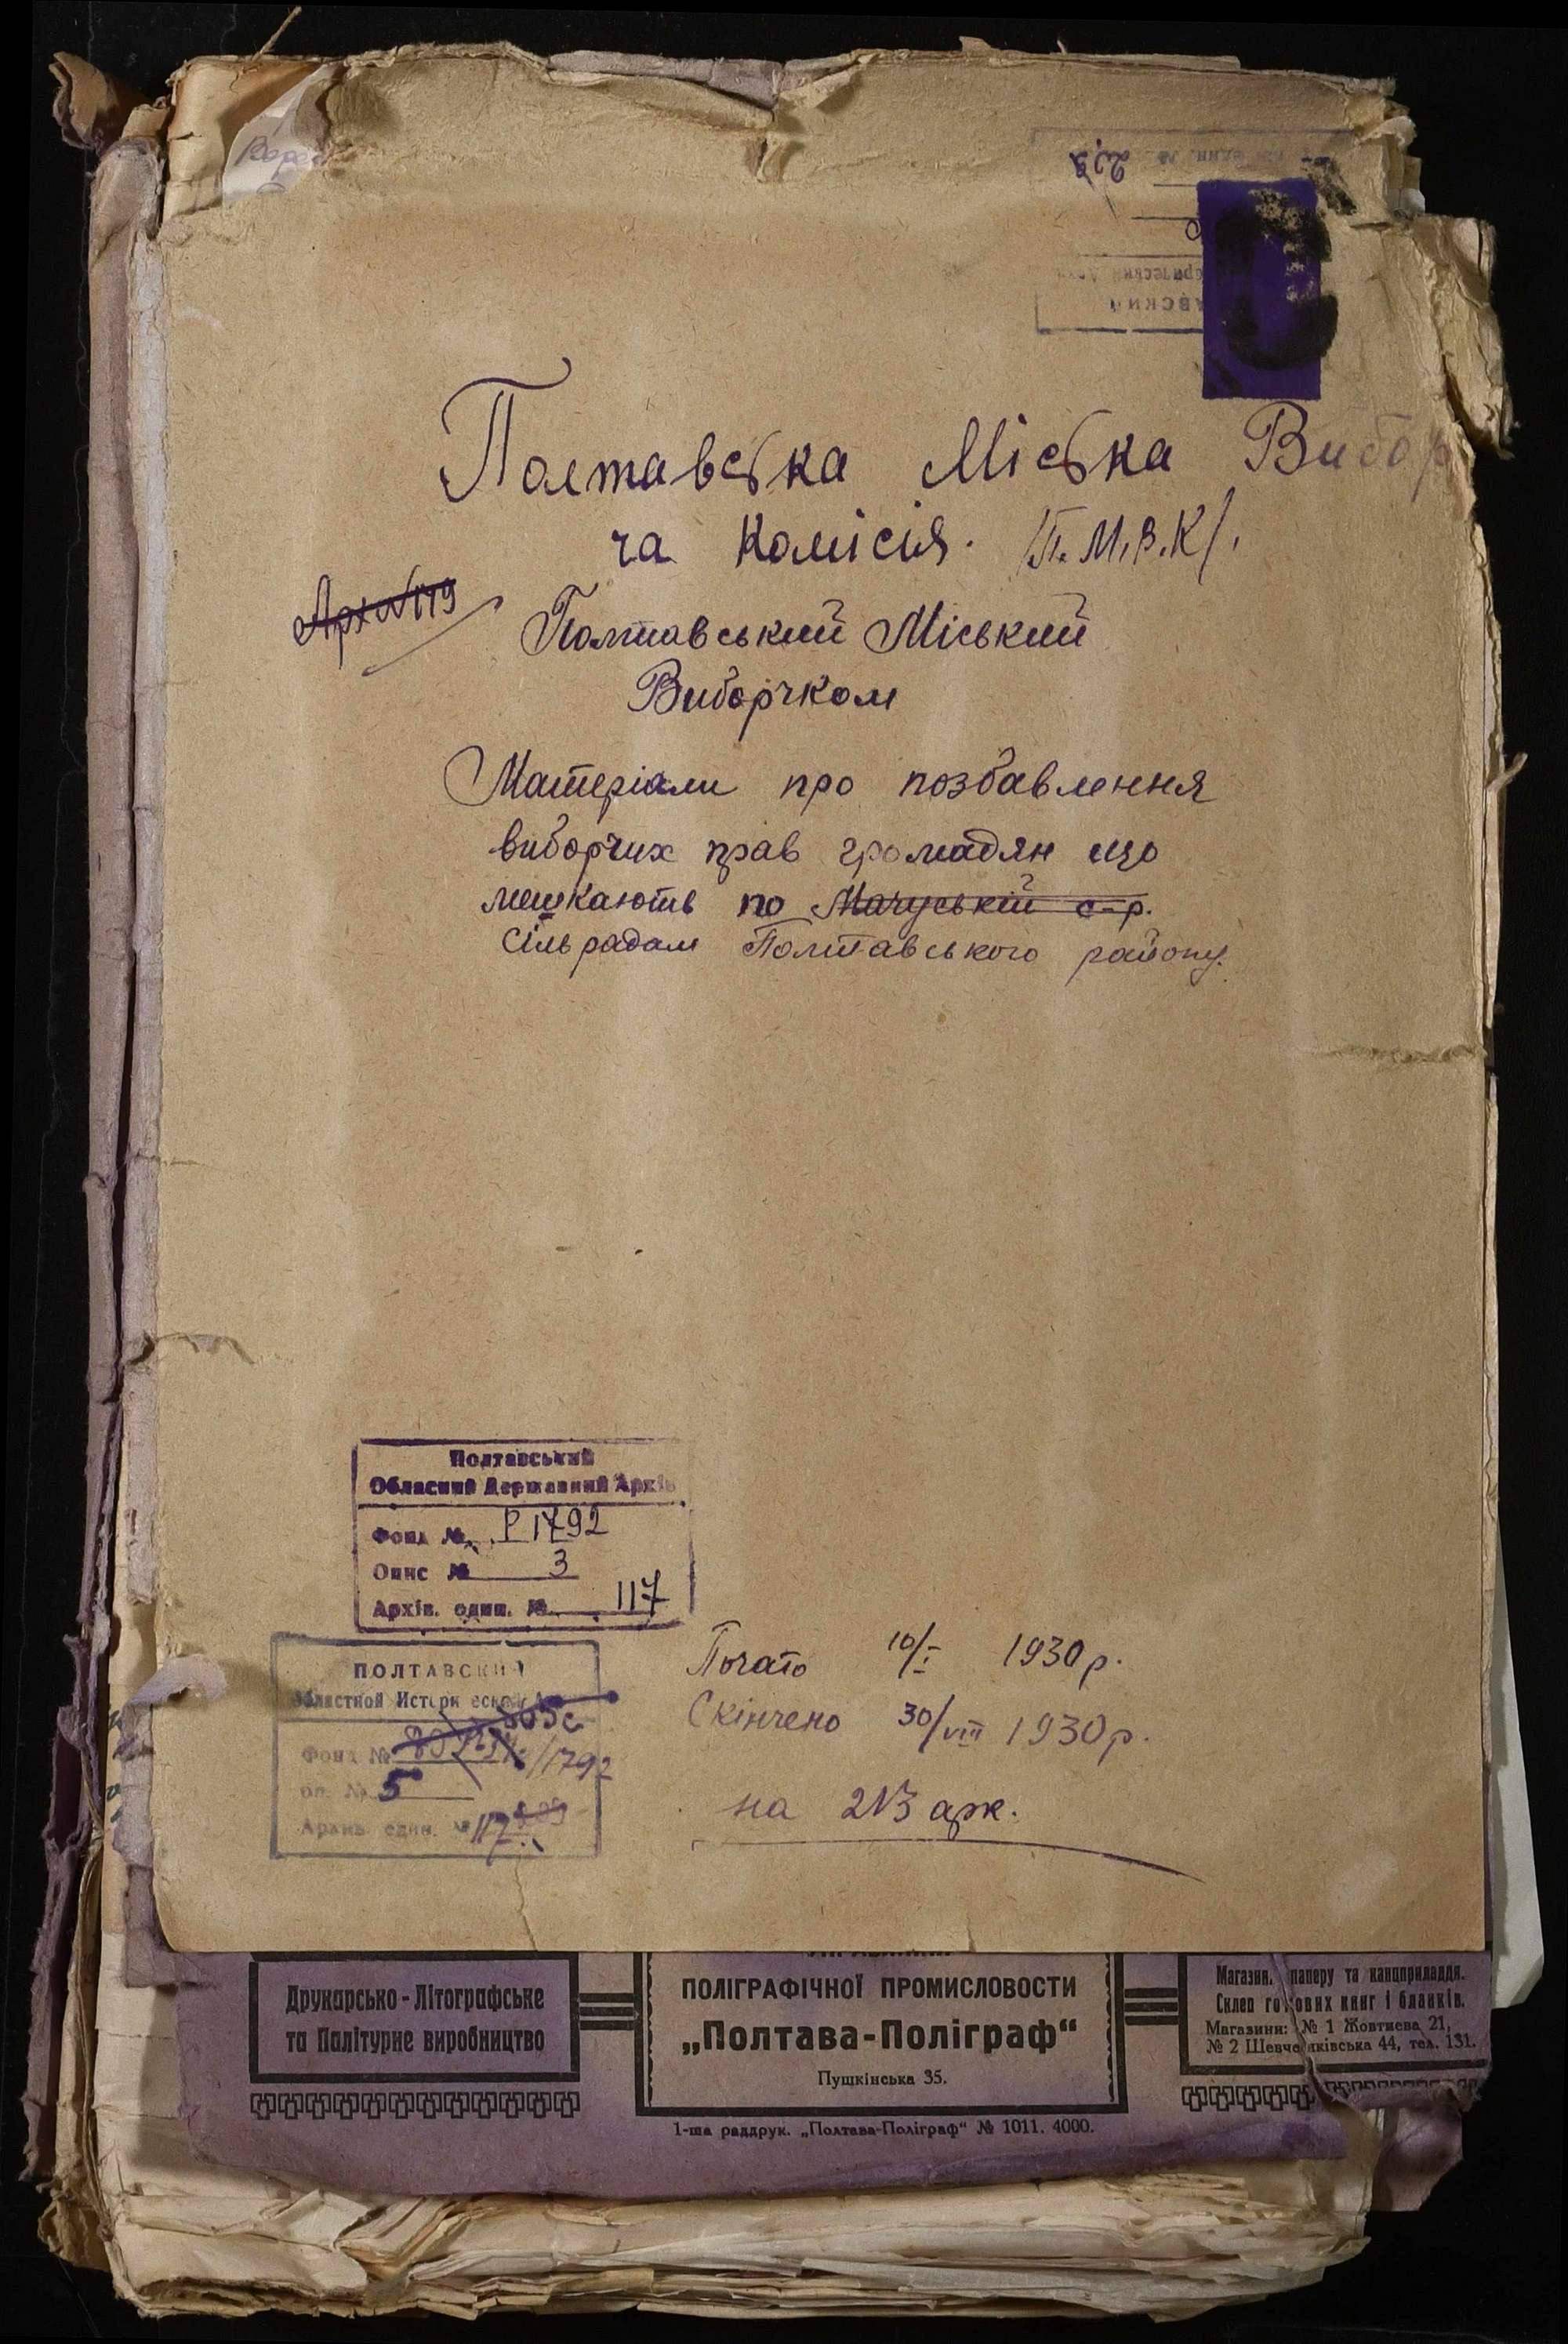 Полтавська Міська Вибор
ча Комісія. /П.М.В.К/.
Арх №119
Полтавський Міський
Виборчком
Матеріали про позбавлення
виборчих прав громадян що
мешкають по Мачуській с-р.
Сільрадам Полтавського району.
Полтавський
Обласний Державний Архів
Фонд № Р1792
Опис № 3
Архів. один. № 117
ПОЛТАВСКИЙ
Областной Историческ
Фонд № /1792
оп. № 5
Архив. един. № 117
Почато 10/I 1930 р.
Скінчено 30/VIII 1930 р.
на 213 арк.
Друкарсько-Літографське
та Палітурне виробництво
ПОЛІГРАФІЧНОЇ ПРОМИСЛОВОСТИ
„Полтава-Поліграф“
Пушкінська 35.
Магазин. паперу та канцприладдя.
Склеп готових книг і бланків.
Магазини: № 1 Жовтнева 21,
№ 2 Шевченківська 44, тел. 131.
1-ша раддрук. „Полтава-Поліграф“ № 1011. 4000.